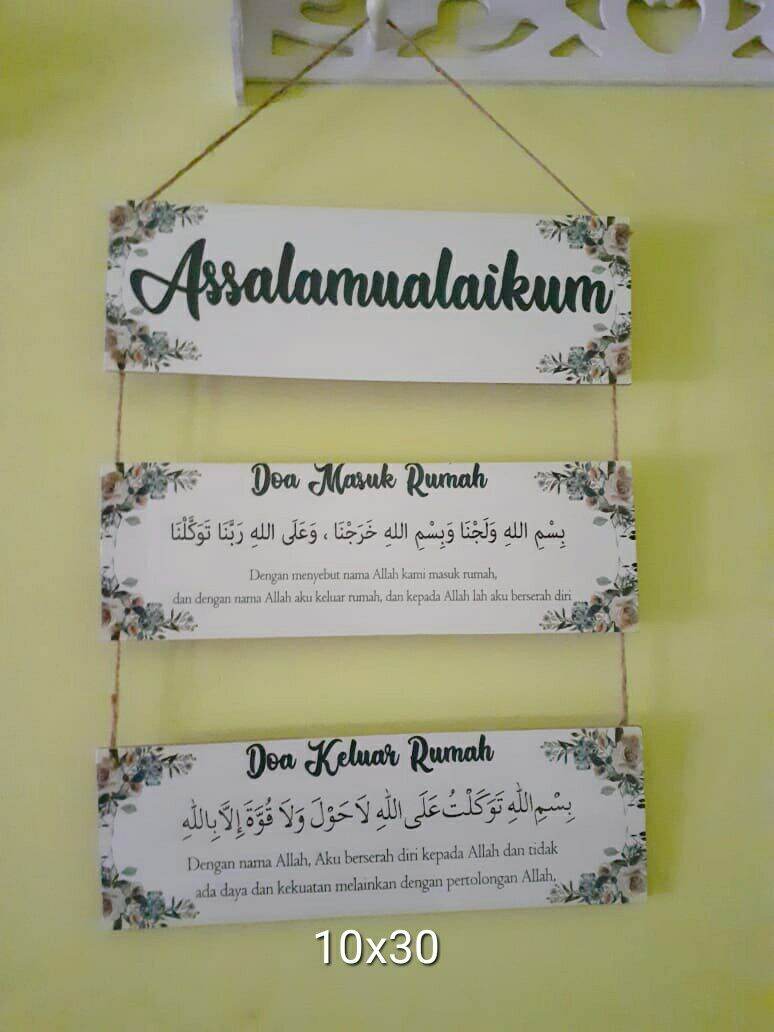 Assalamualaikum
Doa Masuk Rumah
بِسْمِ اللهِ وَلَجْنَا وَبِسْمِ اللهِ خَرَجْنَا ، وَعَلَى اللهِ رَبَّنَا تَوَكَّلْنَا
Dengan menyebut nama Allah kami masuk rumah,
dan dengan nama Allah aku keluar rumah, dan kepada Allah lah aku berserah diri
Doa Keluar Rumah
بِسْمِ اللّٰهِ تَوَكَلْتُ عَلَى اللّٰهِ لَا حَوْلَ وَلَا قُوَّةَ إِلاَّ بِاللّٰهِ
Dengan nama Allah, Aku berserah diri kepada Allah dan tidak
ada daya dan kekuatan melainkan dengan pertolongan Allah.
10x30